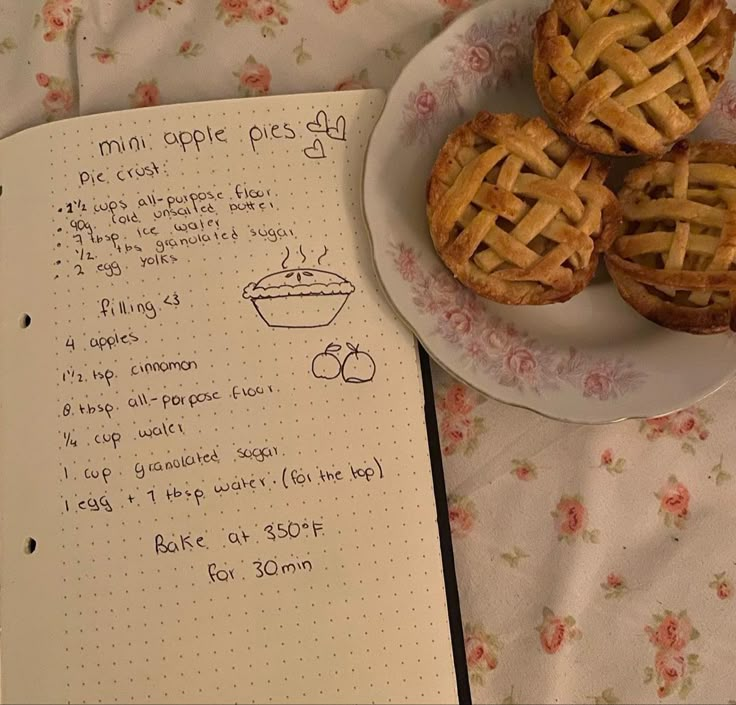 mini apple pies
pie crust:
• 1 1/2 cups all-purpose flour
• 90g cold unsalted butter
• 7 tbsp ice water
• 1/2 tbs granulated sugar
• 2 egg yolks
filling <3
4 apples
1 1/2 tsp cinnamon
8 tbsp all-purpose flour
1/4 cup water
1 cup granulated sugar
1 egg + 1 tbsp water (for the top)
Bake at 350°F
for 30min